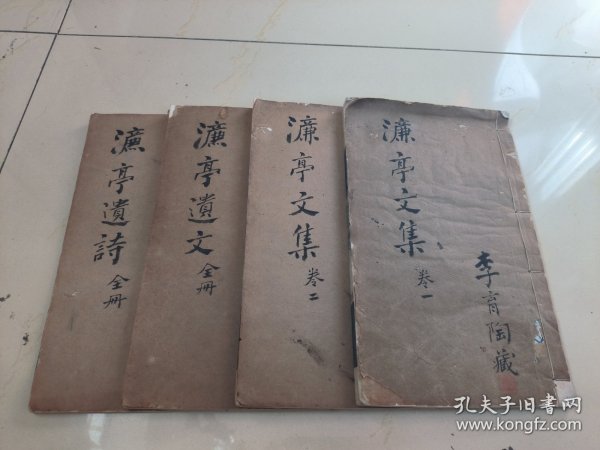 濂亭文集
卷一
李育陶藏
濂亭文集
卷二
濂亭遺文
全冊
濂亭遺詩
全冊
孔夫子旧书网
www.kongfz.com